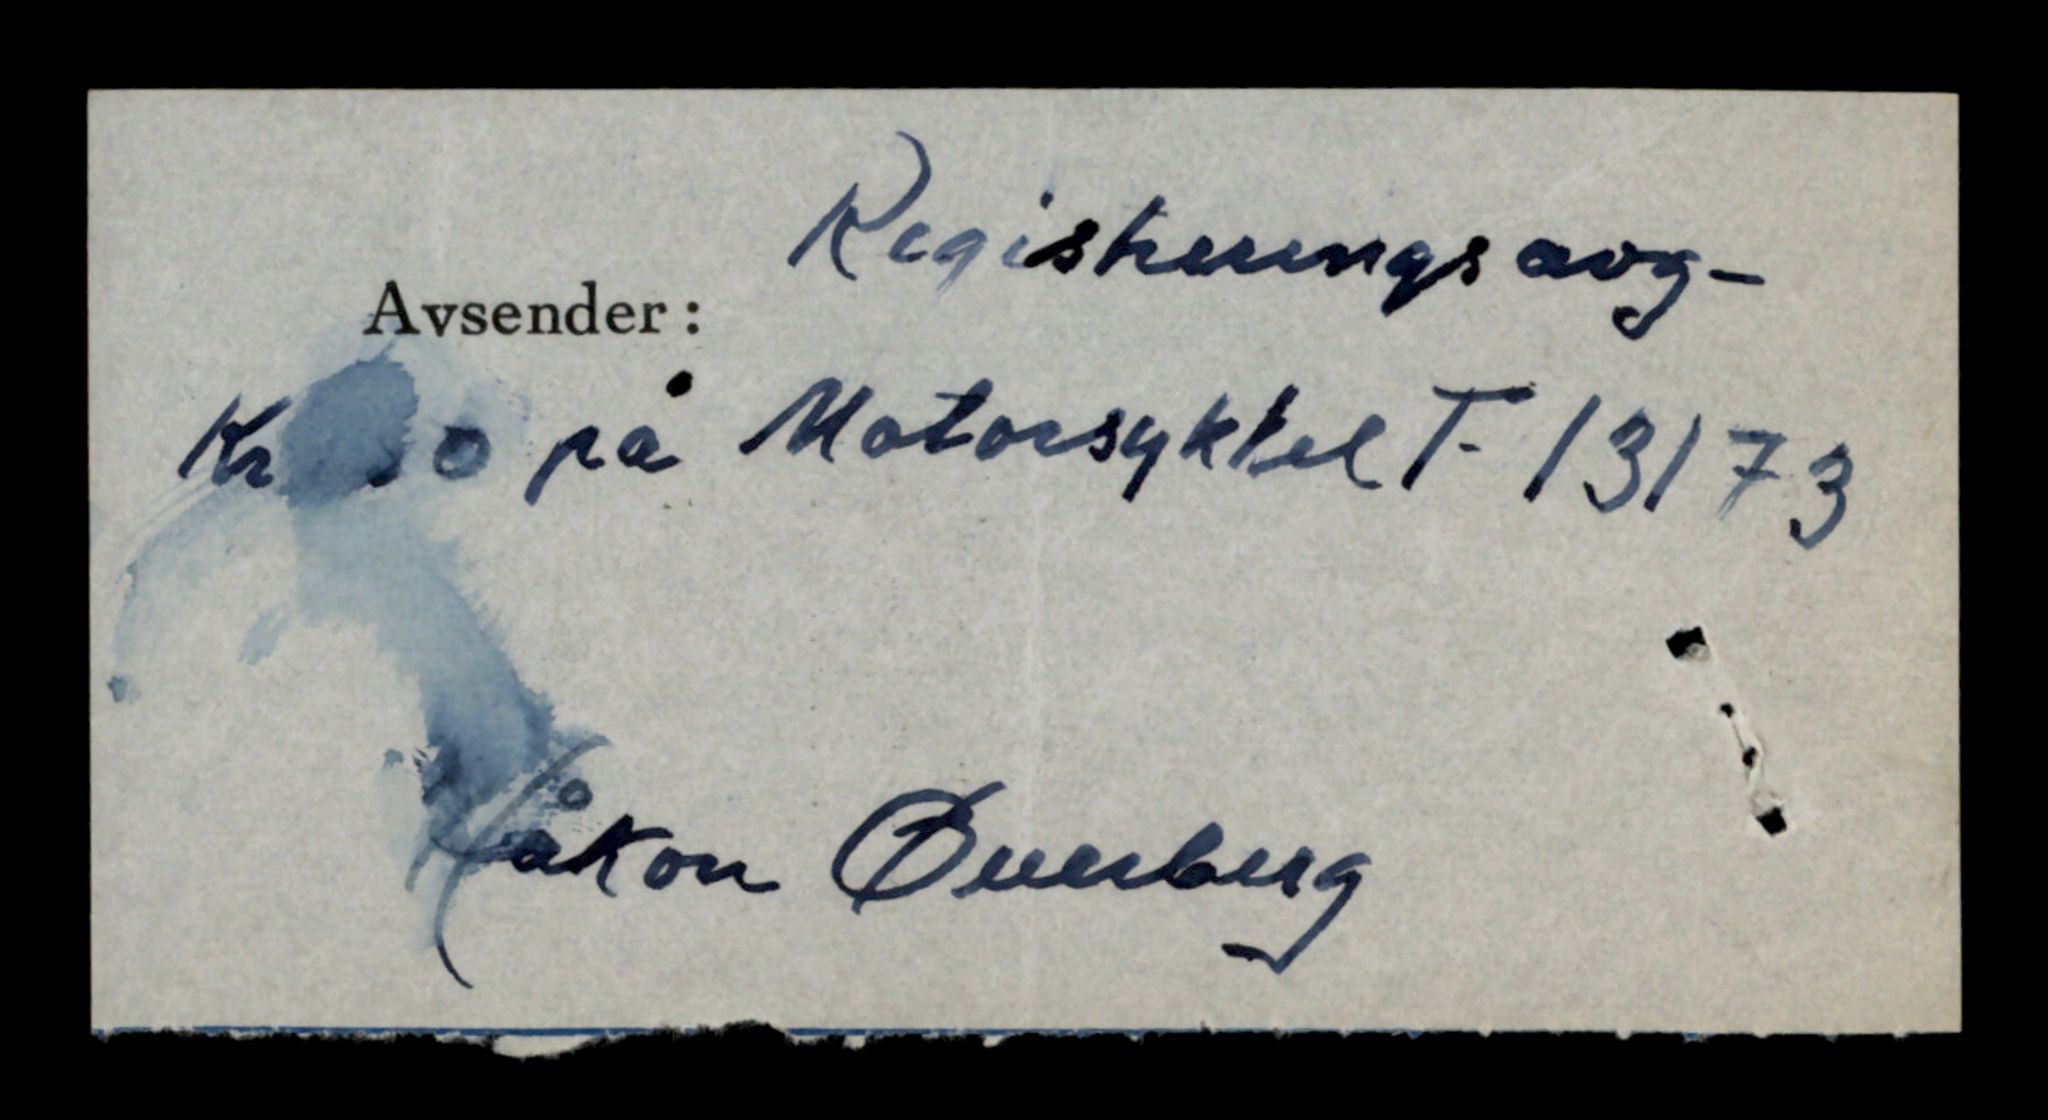 Registreringsavg-
Avsender:
Kr på Motorsykkel T-13173
Håkon Øverberg